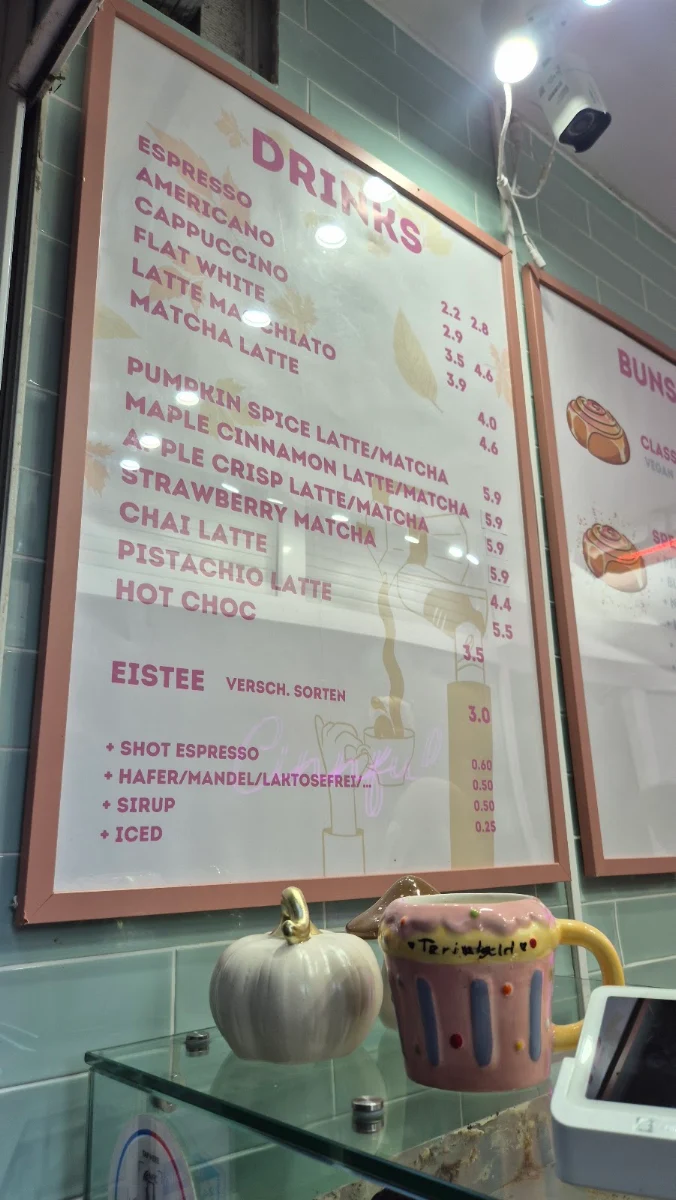 DRINKS
ESPRESSO 2.2 2.8
AMERICANO 2.9
CAPPUCCINO 3.5 4.6
FLAT WHITE 3.9
LATTE MACCHIATO 4.0
MATCHA LATTE 4.6
PUMPKIN SPICE LATTE/MATCHA 5.9
MAPLE CINNAMON LATTE/MATCHA 5.9
APPLE CRISP LATTE/MATCHA 5.9
STRAWBERRY MATCHA 5.9
CHAI LATTE 4.4
PISTACHIO LATTE 5.5
HOT CHOC 3.5
EISTEE VERSCH. SORTEN 3.0
+ SHOT ESPRESSO 0.60
+ HAFER/MANDEL/LAKTOSEFREI/... 0.50
+ SIRUP 0.50
+ ICED 0.25
BUNS
CLASS
VEGAN
SPE